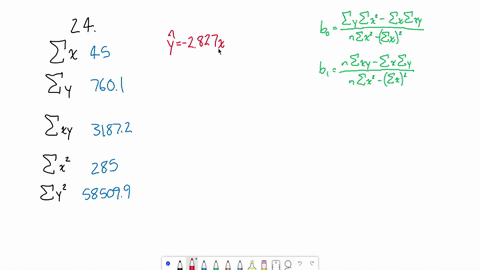 24.
∑x 45
∑y 760.1
∑xy 3187.2
∑x² 285
∑y² 58509.9
ŷ=-2827x
b₀ = (∑y∑x² - ∑x∑xy) / (n∑x² - (∑x)²)
b₁ = (n∑xy - ∑x∑y) / (n∑x² - (∑x)²)